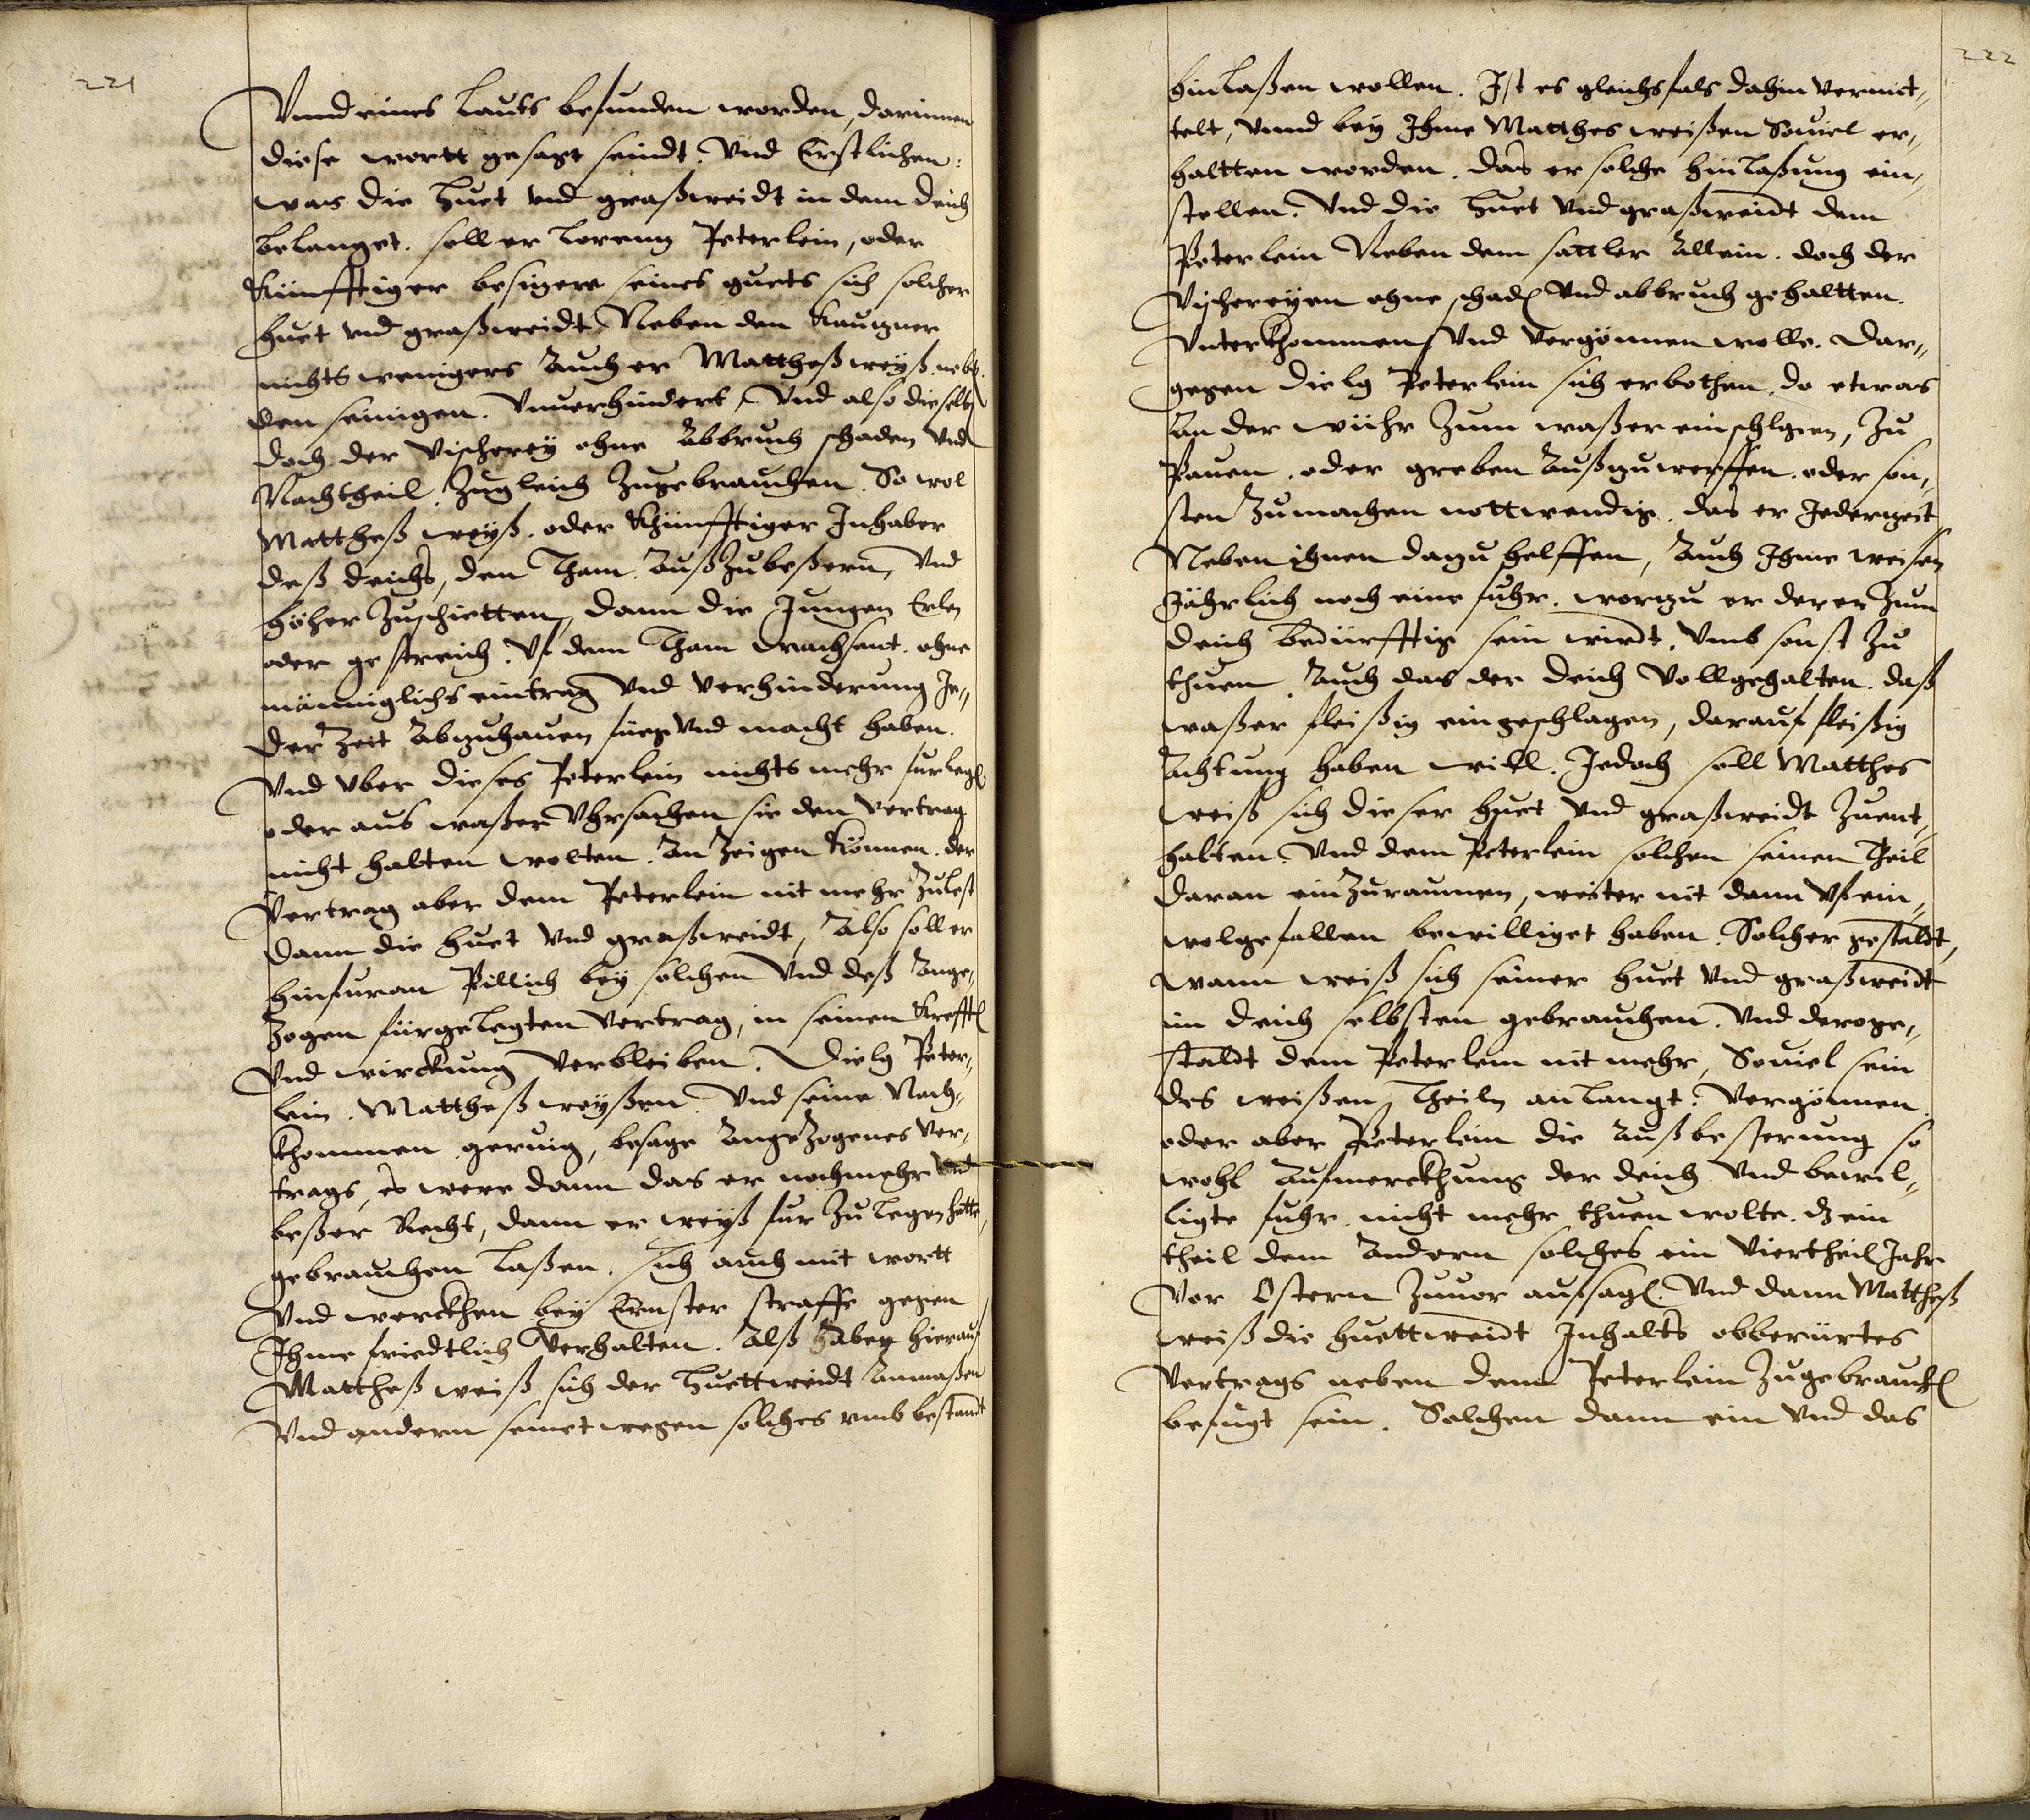 221
Vnnd eines Lauts befunden worden, darinnen
diese wortt gesazt seindt. Vnd Erstlichen:
was die Huet vnd graßweidt in dem deich
belanget. soll er Lorenz Peterlein, oder
Künfftiger besizere seines guets sich solcher
huet vnd graßweidt Neben den Kauzner
nichts wenigers Auch er Mattheß weyß neb.
den seinigen. Vnuerhindert, Vnd also dieselb
doch der Vischerey ohne Abbruch schaden Vnd
Nachtheil. Zugleich Zugebrauchen. So wol
Mattheß weyß. oder Khünfftiger Inhaber
deß deichs, den Tham Außzubeßern, Vnd
höher Zuschietten, dann die Jungen Erlen
oder gestreich. Vf dem Tham wachsent. ohne
männiglichs eintrag Vnd Verhinderung Je„
der Zeit Abzuhauen fueg Vnd macht haben.
Vnd Vber dieses Peterlein nichts mehr furlegen
oder aus waßer Vhrsachen sie den Vertrag
nicht halten wolten. An Zeigen Können. der
Vertrag aber dem Peterlein nit mehr Zulest
dann die huet Vnd graßweidt, Also soll er
hinfuran Pillich bey solchen Vnd deß Ange„
Zogen fürgelegten Vertrag, in seinen Krefften
Vnd wirckung Verbleiben. Vielg Peter„
lein. Mattheß weyßen Vnd seine Nach„
khommen geruig, besage Angezogenes Ver„
trags, es were dann das er nochmehr Vnd
beßer Recht, dann er weyß fur Zu legen hette,
gebrauchen Laßen. sich auch mit wortt
Vnd werckhen bey Ernster straffe gegen
Ihme friedtlich Verhalten. Alß haben hierauf
Mattheß weiß sich der Huettweidt Anmaßen
Vnd andern seinet wegen solches vmb bestandt
222
hinlaßen wollen. Ist es gleichsfals dahin vermit„
telt, Vnnd bey Ihme Matthes weißen Souiel er„
haltten worden. das er solche hinlaßung ein„
stellen. Vnd die Huet Vnd graßweidt dem
Peterlein Neben dem sattler Allein. doch der
Vischereyen ohne schaden Vnd abbruch gehaltten.
Vnterkhommen Vnd Vergönnen wolle. Dar„
gegen Vielg Peterlein sich erbothen. do etwas
An der wühr Zum waßer einschlgen, Zu
Pauen. oder greben Außzuwerffen. oder son„
sten Zumachen nottwendig. das er Jederzeit
Neben ihnen dazu helffen, Auch Ihme weisen
Jährlich noch eine fuhr. worzu er derer Zum
deich bedürfftig sein wirdt. Vmb sonst Zu
thuen. Auch das der deich Vollgehalten. daß
waßer fleißig eingeschlagen, darauf fleißig
Achtung haben will. Jedoch soll Matthes
weiß sich dieser huet Vnd graßweidt Zuent„
halten. Vnd dem Peterlein solchen seinen Theil
daran einZuraumen, weiter nit dann Vf ein„
wolgefallen bewilliget haben. Solcher gestaldt,
wann weiß sich seiner huet Vnd graßweidt
im deich selbsten gebrauchen. Vnd deroge„
staldt dem Peterlein nit mehr, Souiel sein
des weißen, Theiln anlangt. Vergönnen.
oder aber Peterlein die Außbesserung so
wohl Aufmerckhung der deich Vnd bewil„
ligte fuhr nicht mehr thuen wolte. dz ein
theil dem Andern solches ein Viertheil Jahr
Vor Ostern Zuuor aufsagen. Vnd dann Mattheß
weiß die huettweidt Inhalts obberürtes
Vertrags neben dem Peterlein Zugebrauchen
befugt sein. Solchen dann ein Vnd das